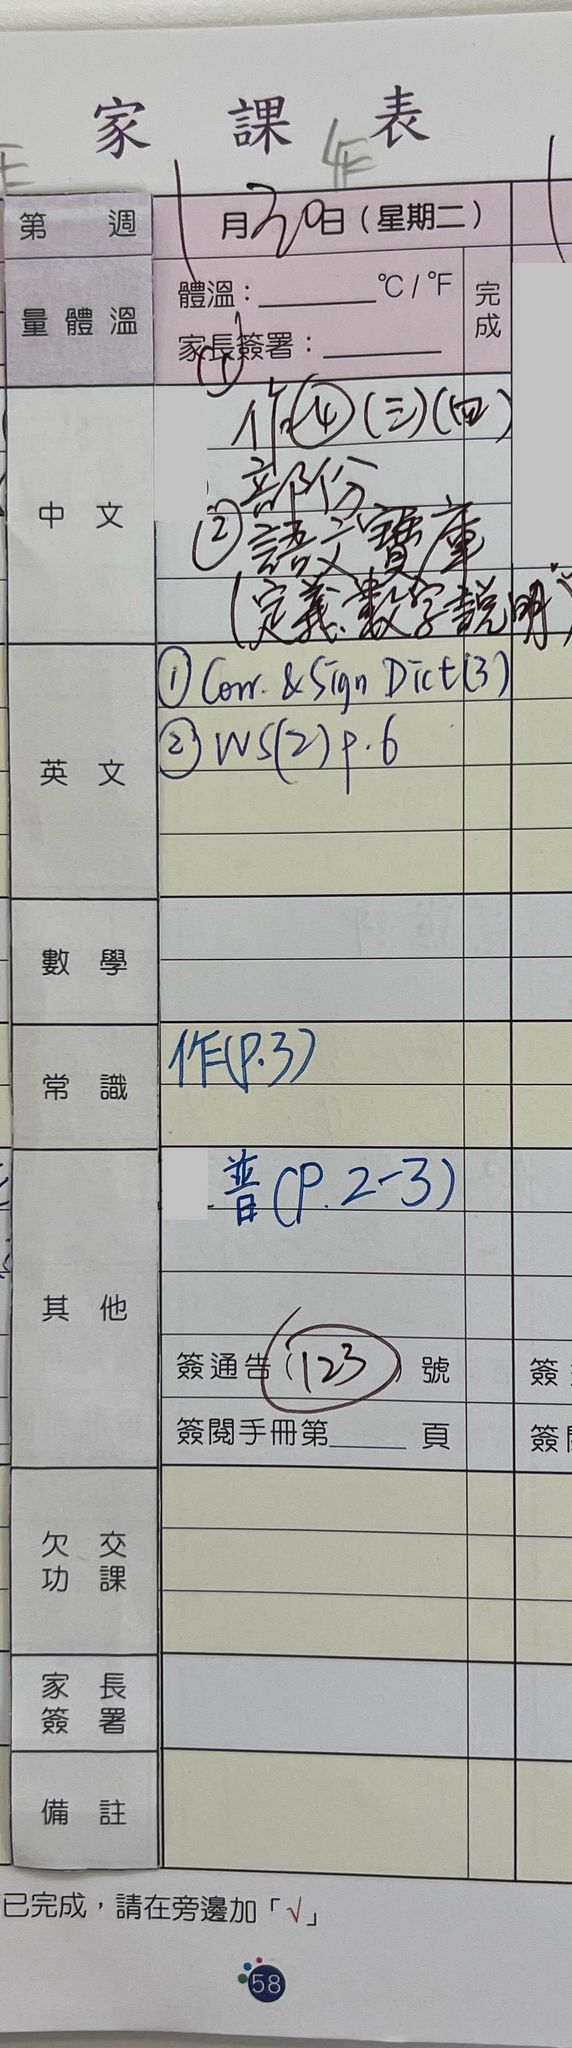 家課表
4F
第 週
1月30日（星期二）
量體溫
體溫：______℃/℉
完成
家長簽署：______
中文
① 作④(三)(四)
部份
② 語文寶庫
(定義、數字說明)
英文
① Corr. & Sign Dict(3)
② WS(2) p.6
數學
常識
作(P.3)
其他
普(P.2-3)
簽通告（123）號
簽閱手冊第____頁
簽
簽閱
欠交功課
家長簽署
備註
已完成，請在旁邊加「√」
58